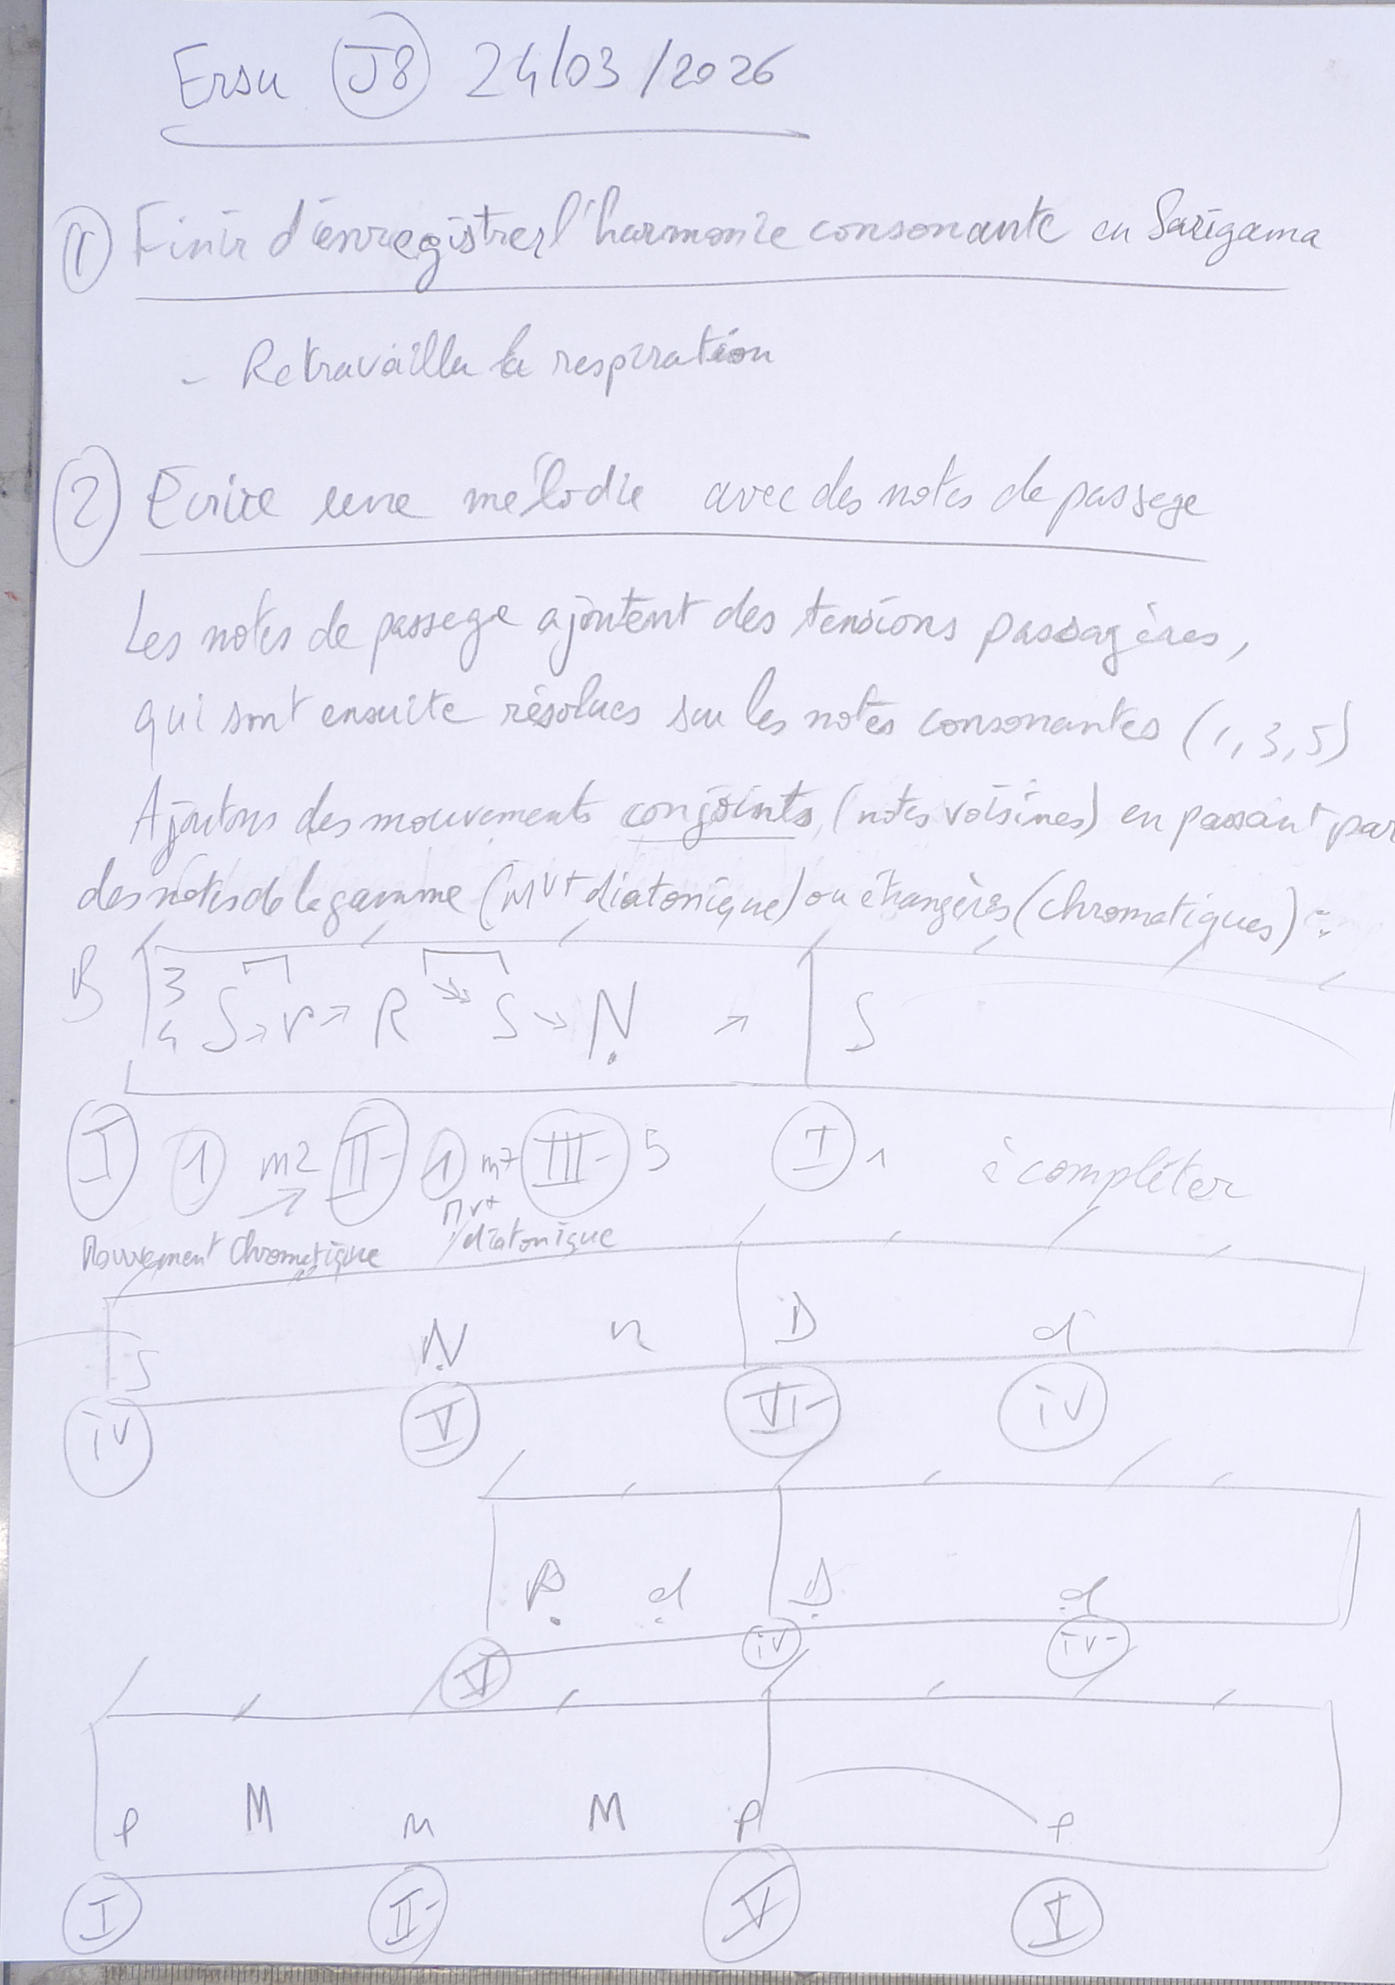 Ersu J8 24/03/2026
① Finir d'enregistrer l'harmonie consonante en Sarigama
- Retravailler la respiration
② Ecrire une mélodie avec des notes de passage
Les notes de passage ajoutent des tensions passagères,
qui sont ensuite résolues sur les notes consonantes (1, 3, 5)
Ajoutons des mouvements conjoints (notes voisines) en passant par
des notes de la gamme (Mvt diatonique) ou étrangères (chromatiques) :
3 4 S → r → R → S → Ṇ → S
I 1 m2 → II- 1 m7 III- 5 I 1 à compléter
Mouvement Chromatique Mvt diatonique
S Ṇ n D d
iv V VI- iv
P̣ ḍ Ḍ ḍ
V iv iv-
P M m M P P
I II- V I